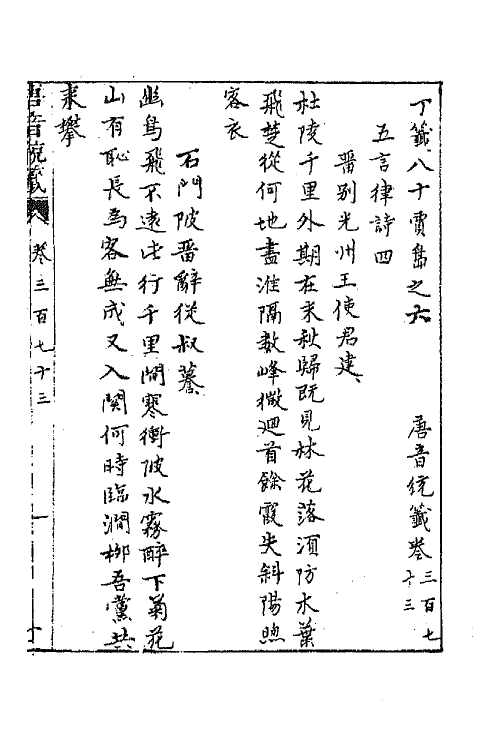 丁籤八十賈島之六　唐音統籤卷三百七十三
五言律詩四
畱别光州王使君建
杜陵千里外期在末秋歸旣見林花落湏防水葉
飛楚從何地盡淮隔數峰微迴首餘霞失斜陽照
客衣
石門陂畱辭從叔謩
幽鳥飛不遠此行千里間寒衝陂水霧醉下菊花
山有恥長爲客無成又入関何時臨澗柳吾黨共
来攀
唐音統籤　卷三百七十三　一